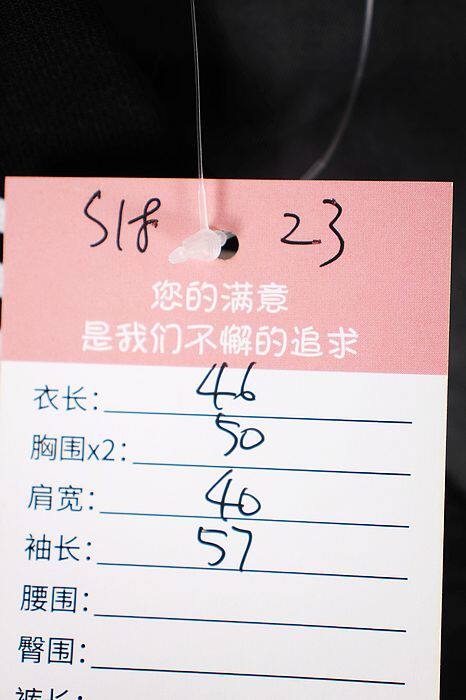 S18 23
您的满意
是我们不懈的追求
衣长: 46
胸围x2: 50
肩宽: 40
袖长: 57
腰围:
臀围:
裤长: